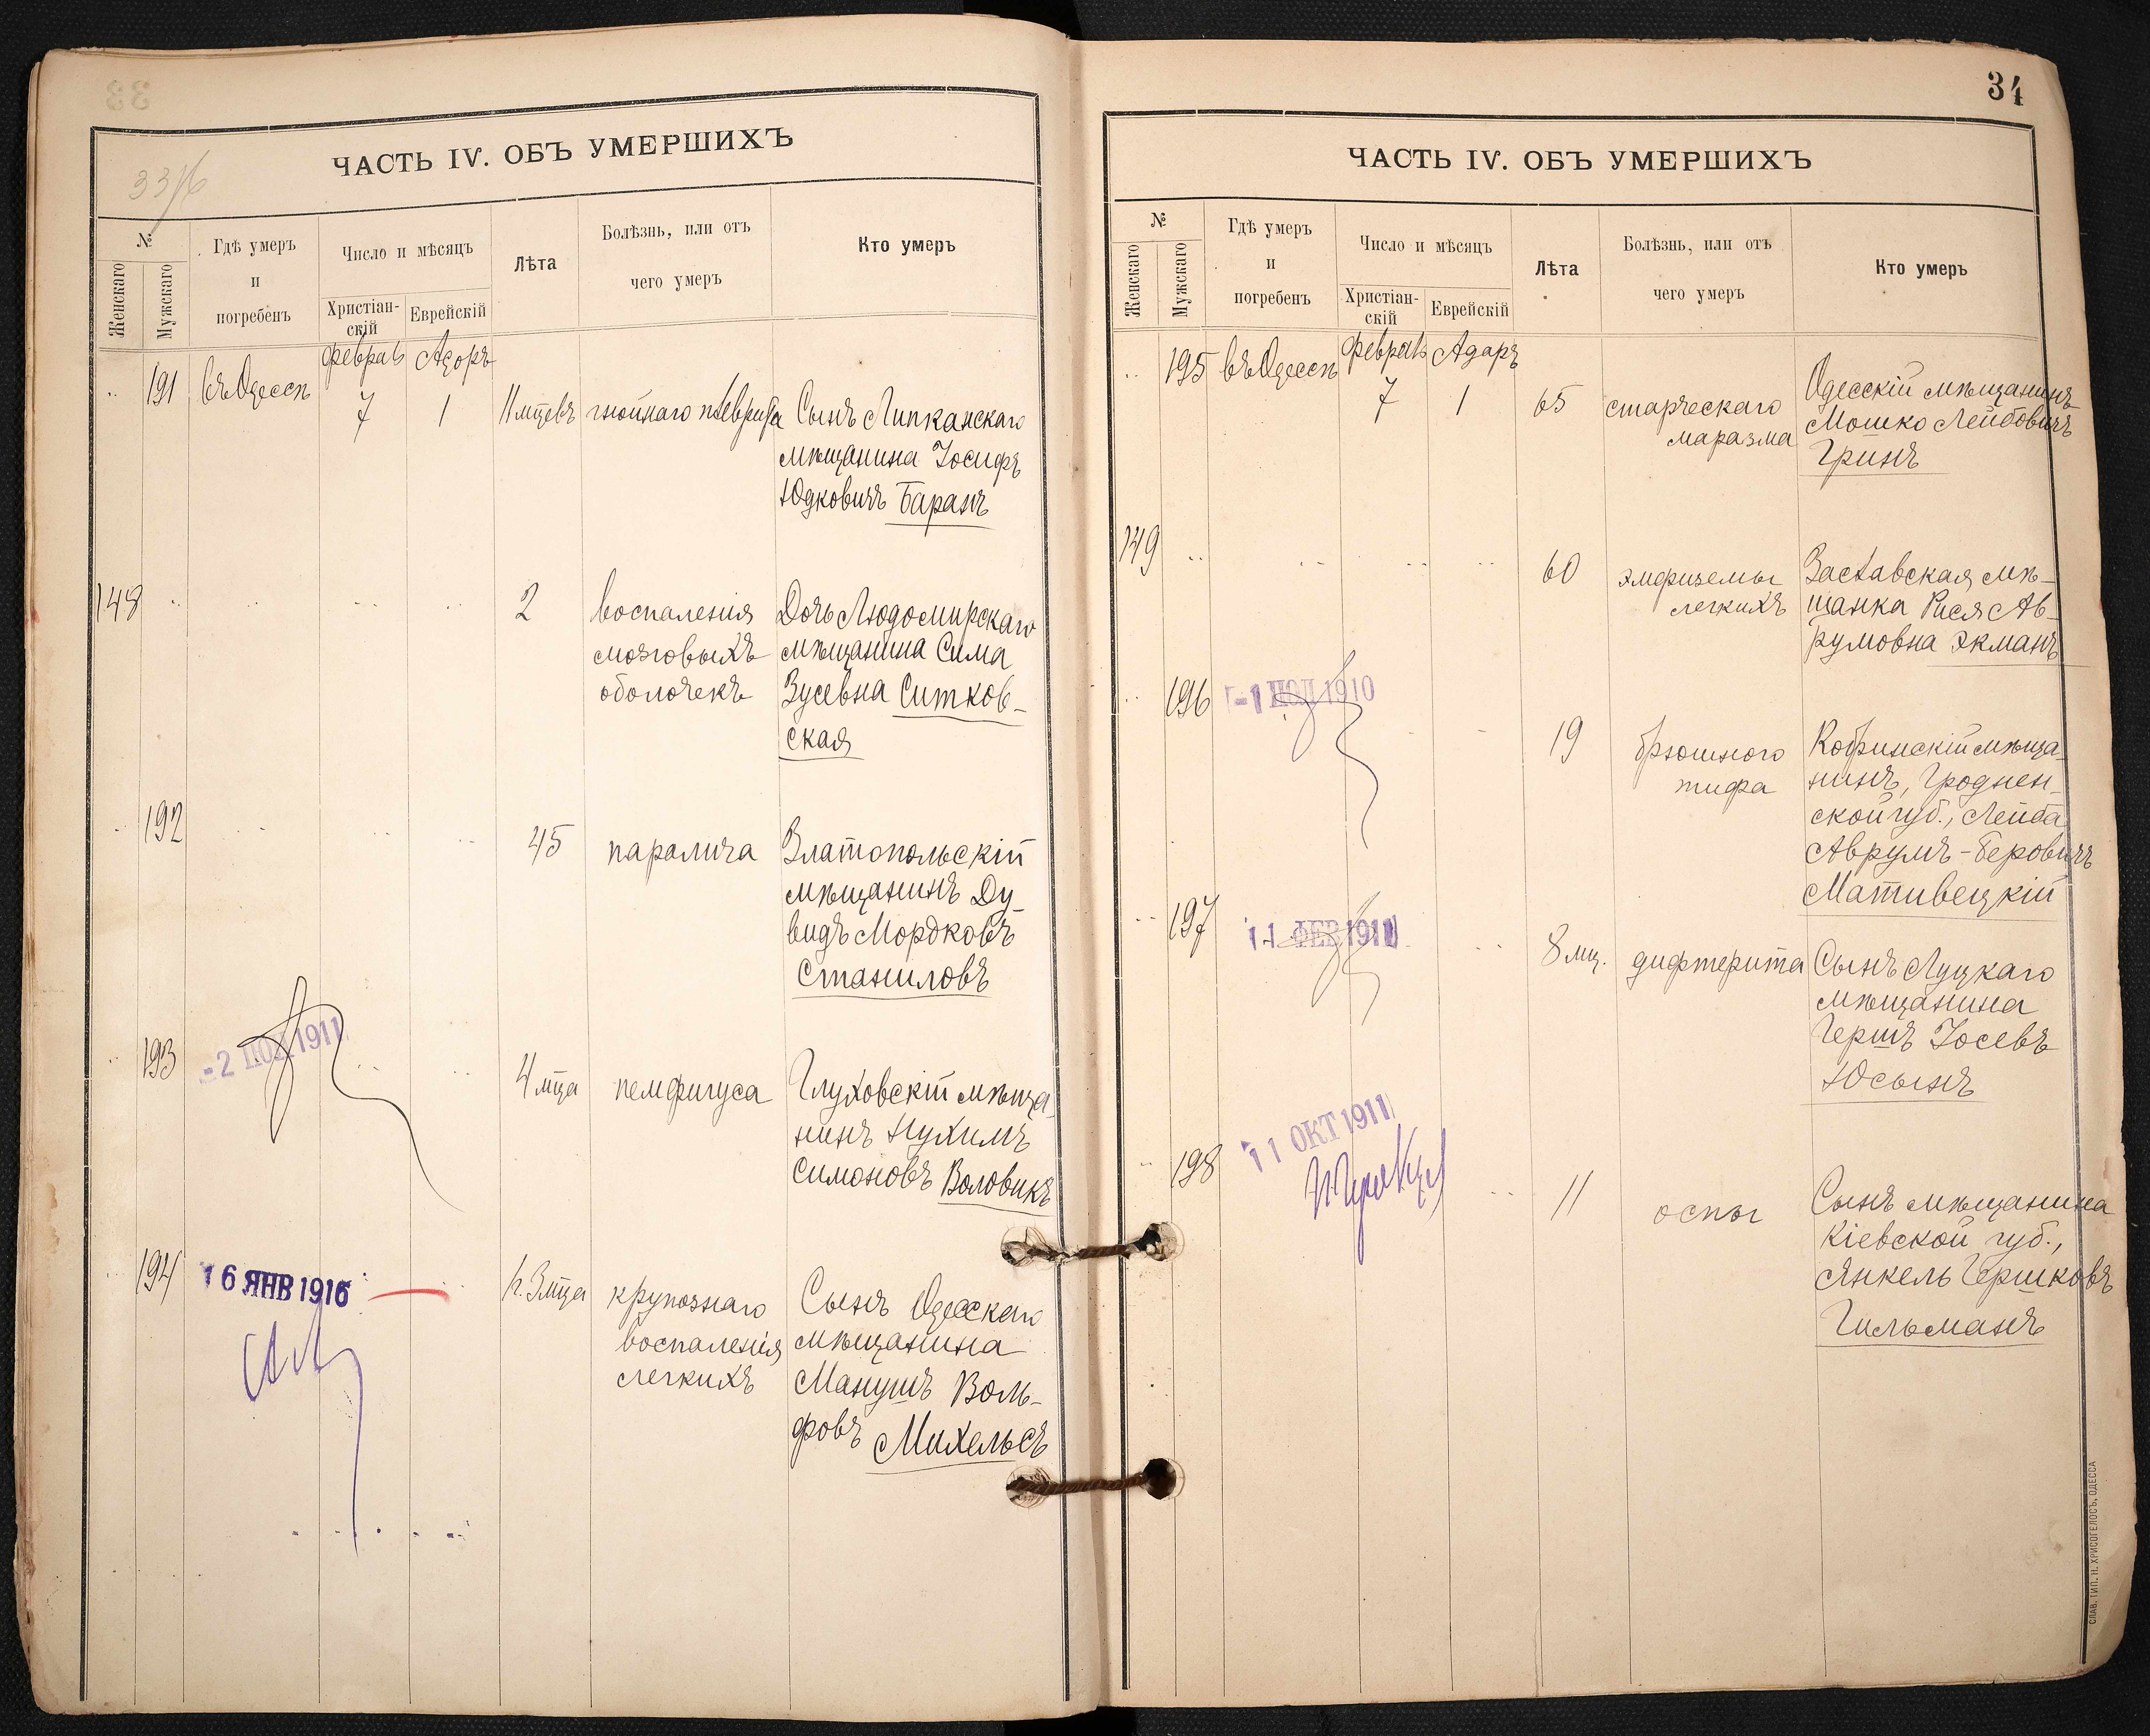 33
33/6
ЧАСТЬ IV. ОБЪ УМЕРШИХЪ
№
Женскаго
Мужскаго
Гдѣ умеръ
и
погребенъ
Число и мѣсяцъ
Христіан-
скій
Еврейскій
Лѣта
Болѣзнь, или отъ
чего умеръ
Кто умеръ
191
въ Одессѣ
февраль
7
Адаръ
1
11 мцевъ
гнойнаго плеврита
Сынъ Липканскаго
мѣщанина Іосифъ
Юдковичъ Баранъ
148
2
воспаленія
мозговыхъ
оболочекъ
Дочь Людомирскаго
мѣщанина Сима
Зусевна Ситков-
ская
192
45
паралича
Златопольскій
мѣщанинъ Ду-
видъ Мордковъ
Станиловъ
193
-2 1911
4 мца
пемфигуса
Глуховскій мѣща-
нинъ Нухимъ
Симоновъ Воловикъ
194
16 ЯНВ 1916
3 мца
крупознаго
воспаленія
легкихъ
Сынъ Одесскаго
мѣщанина
Манушъ Воль-
фовъ Михельсъ
34
ЧАСТЬ IV. ОБЪ УМЕРШИХЪ
№
Женскаго
Мужскаго
Гдѣ умеръ
и
погребенъ
Число и мѣсяцъ
Христіан-
скій
Еврейскій
Лѣта
Болѣзнь, или отъ
чего умеръ
Кто умеръ
195
въ Одессѣ
февраль
7
Адаръ
1
65
старческаго
маразма
Одесскій мѣщанинъ
Мошко Лейбовичъ
Гринъ
149
60
эмфиземы
легкихъ
Заславская мѣ-
щанка Рися Ав-
румовна Экманъ
196
-1 1910
19
брюшного
тифа
Кобринскій мѣща-
нинъ, Гроднен-
ской губ., Лейба
Аврумъ-Беровичъ
Мативецкій
197
11 ФЕВ 1911
8 мц.
дифтерита
Сынъ Луцкаго
мѣщанина
Гершъ Іосевъ
Юсынъ
198
11 ОКТ 1911
11
оспы
Сынъ мѣщанина
Кіевской губ.,
Янкель Гершковъ
Гильманъ
СЛАВ. ТИП. Н. ХРИСОГЕЛОСЪ, ОДЕССА